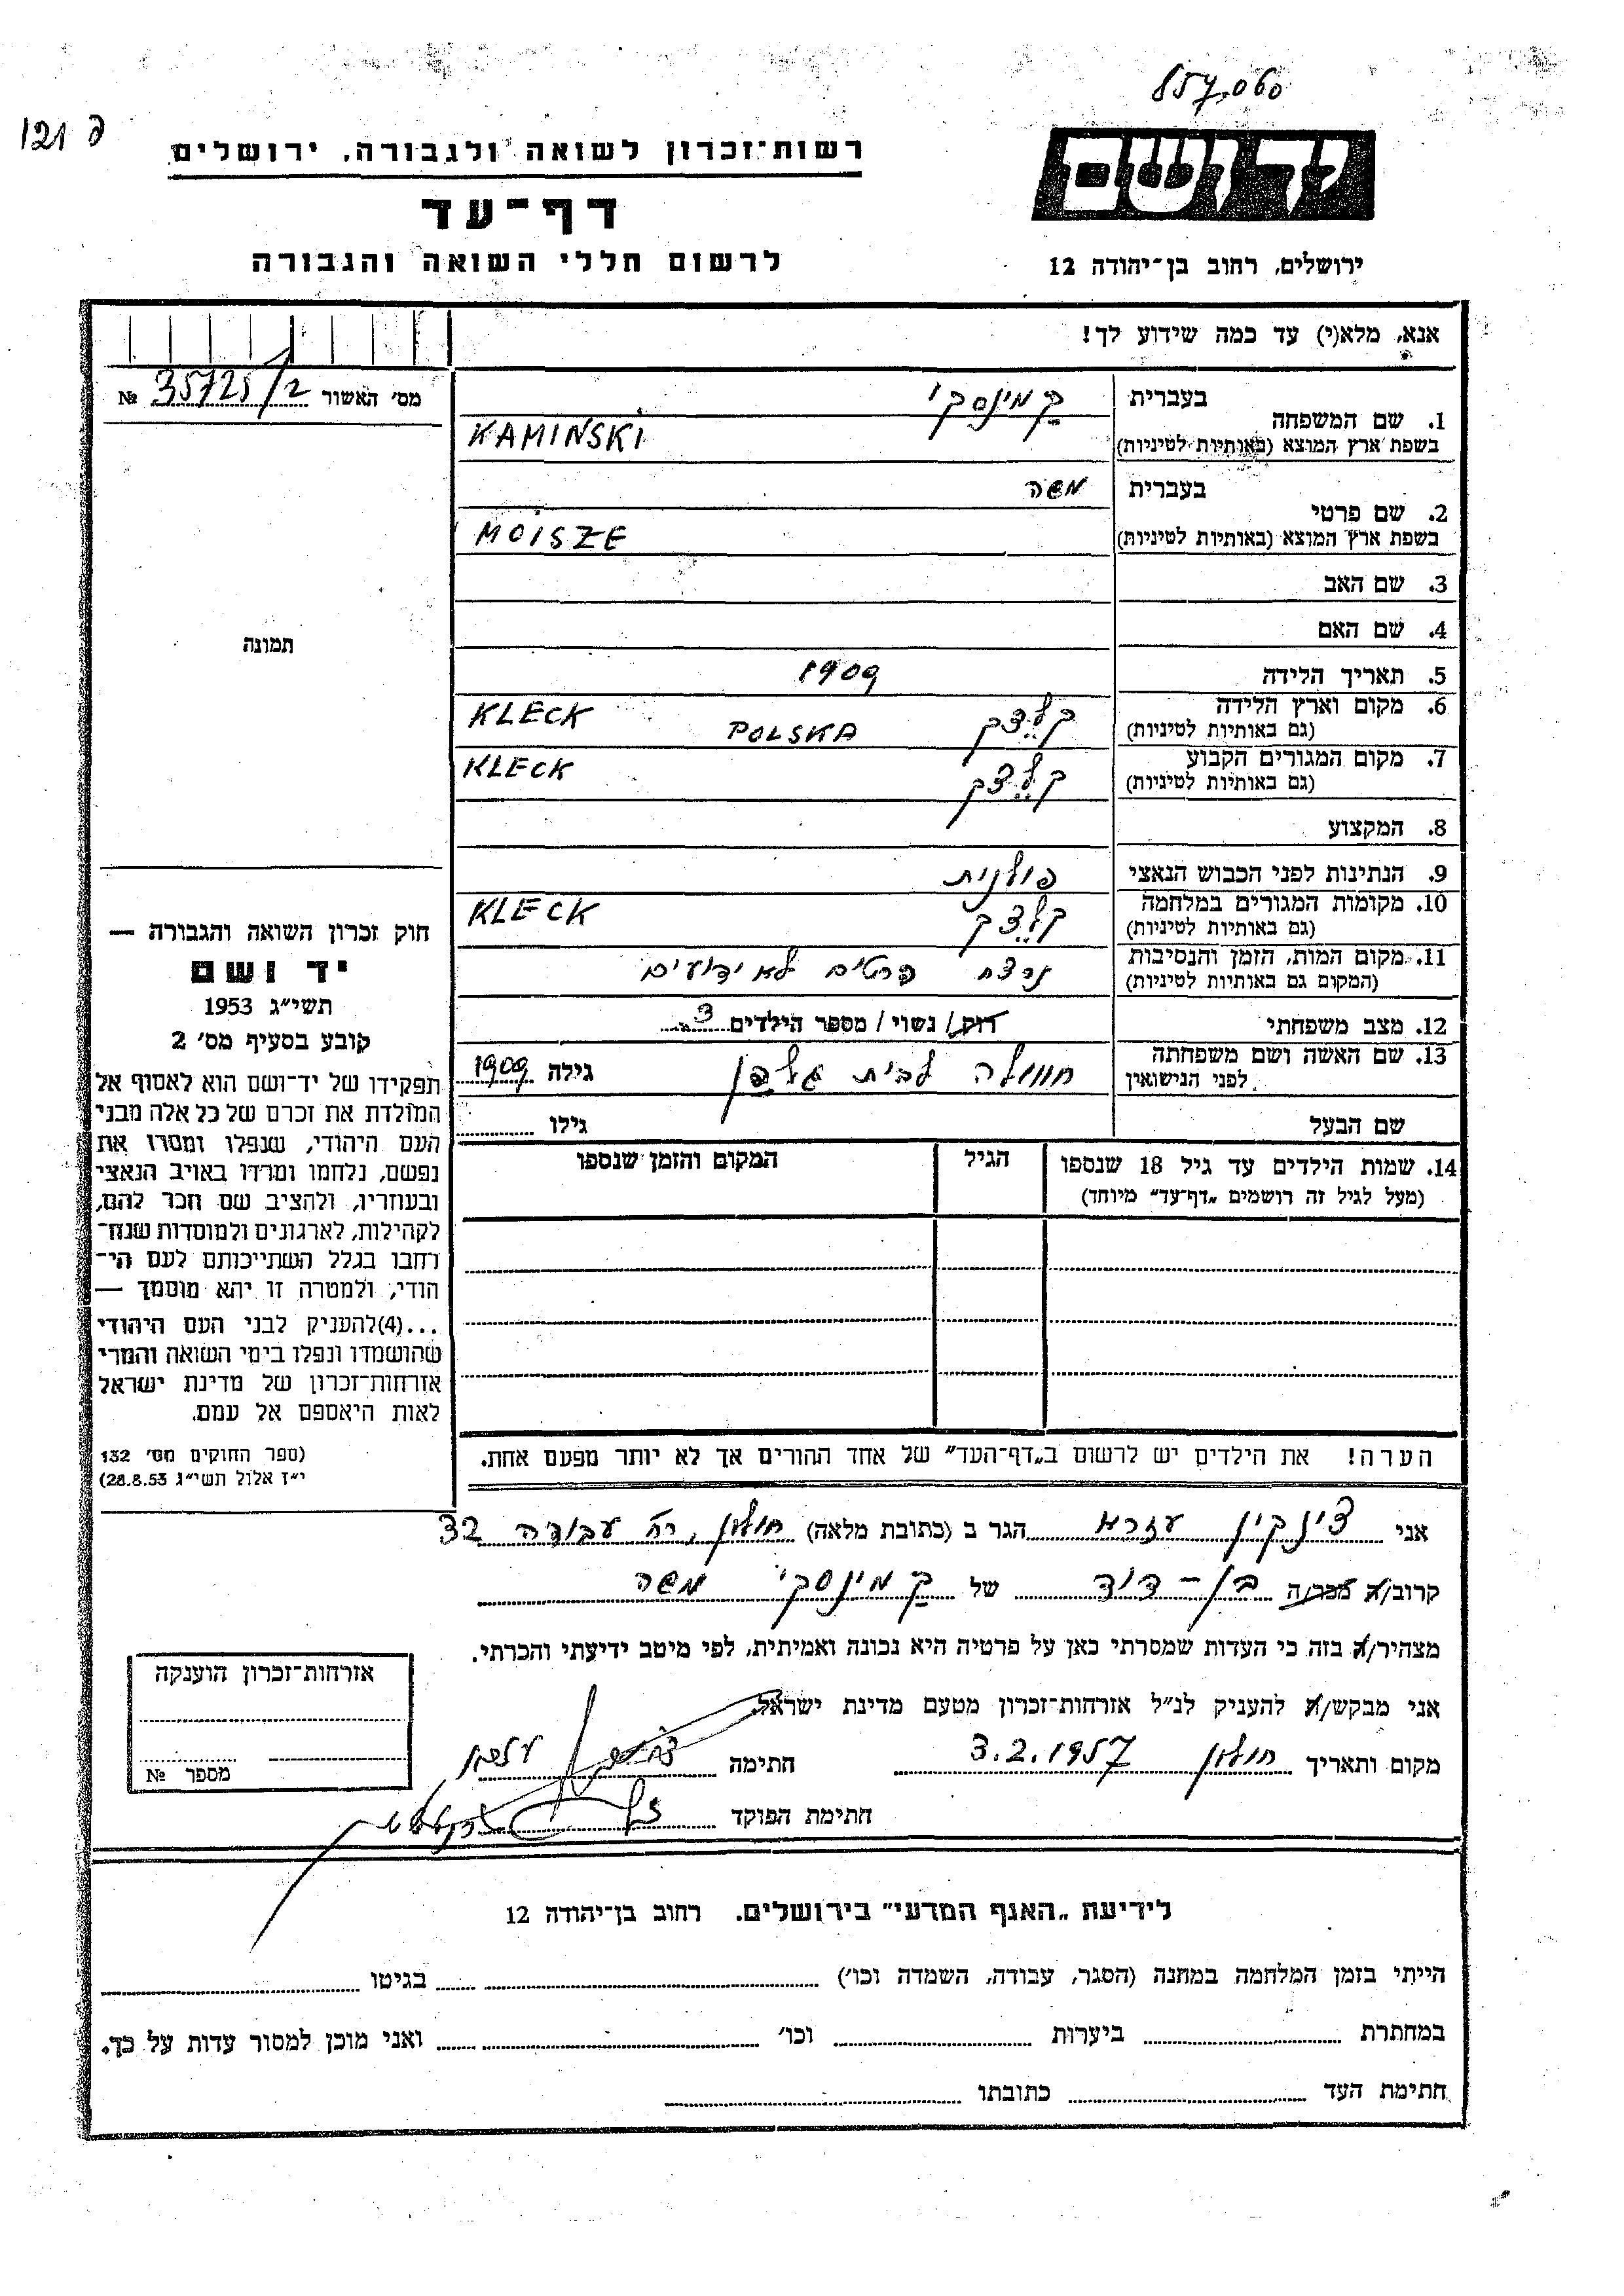 857.060
121 פ
ידושם
רשות־זכרון לשואה ולגבורה, ירושלים
דף־עד
לרשום חללי השואה והגבורה
ירושלים, רחוב בן־יהודה 12
אנא, מלא(י) עד כמה שידוע לך!
מס׳ האשור 35725/2 №
תמונה
1. שם המשפחה בעברית קמינסקי
בשפת ארץ המוצא (באותיות לטיניות) KAMINSKI
2. שם פרטי בעברית משה
בשפת ארץ המוצא (באותיות לטיניות) MOISZE
3. שם האב
4. שם האם
5. תאריך הלידה 1909
6. מקום וארץ הלידה קלצק POLSKA KLECK
(גם באותיות לטיניות)
7. מקום המגורים הקבוע קלצק KLECK
(גם באותיות לטיניות)
8. המקצוע
9. הנתינות לפני הכבוש הנאצי פולנית
10. מקומות המגורים במלחמה קלצק KLECK
(גם באותיות לטיניות)
11. מקום המות, הזמן והנסיבות נרצח פרטים לא ידועים
(המקום גם באותיות לטיניות)
12. מצב משפחתי רוק/ נשוי / מספר הילדים 3
13. שם האשה ושם משפחתה לבית גילה 1909
לפני הנישואין
שם הבעל גילו
14. שמות הילדים עד גיל 18 שנספו הגיל המקום והזמן שנספו
(מעל לגיל זה רושמים „דף־עד״ מיוחד)
הערה! את הילדים יש לרשום ב„דף־העד״ של אחד ההורים אך לא יותר מפעם אחת.
חוק זכרון השואה והגבורה —
יד ושם
תשי״ג 1953
קובע בסעיף מס׳ 2
תפקידו של יד־ושם הוא לאסוף אל
המולדת את זכרם של כל אלה מבני
העם היהודי, שנפלו ומסרו את
נפשם, נלחמו ומרדו באויב הנאצי
ובעוזריו, ולהציב שם וזכר להם,
לקהילות, לארגונים ולמוסדות שנח־
רחבו בגלל השתייכותם לעם הי־
הודי, ולמטרה זו יהא מוסמך —
...(4)להעניק לבני העם היהודי
שהושמדו ונפלו בימי השואה והמרי
אזרחות־זכרון של מדינת ישראל
לאות היאספם אל עמם.
(ספר החוקים מס׳ 132
י״ז אלול תשי״ג 28.8.53)
אני צינקין עזרא הגר ב (כתובת מלאה) חולון, רח׳ עבודה 32
קרוב/ה מכר/ה בן-דוד של קמינסקי משה
מצהיר/ה בזה כי העדות שמסרתי כאן על פרטיה היא נכונה ואמיתית, לפי מיטב ידיעתי והכרתי.
אני מבקש/ת להעניק לנ״ל אזרחות־זכרון מטעם מדינת ישראל.
מקום ותאריך חולון 3.2.1957 חתימה
חתימת הפוקד
אזרחות־זכרון הוענקה
מספר №
לידיעת „האגף המדעי״ בירושלים. רחוב בן־יהודה 12
הייתי בזמן המלחמה במחנה (הסגר, עבודה, השמדה וכו׳) בגיטו
במחתרת ביערות וכו׳ ואני מוכן למסור עדות על כך.
חתימת העד כתובתו